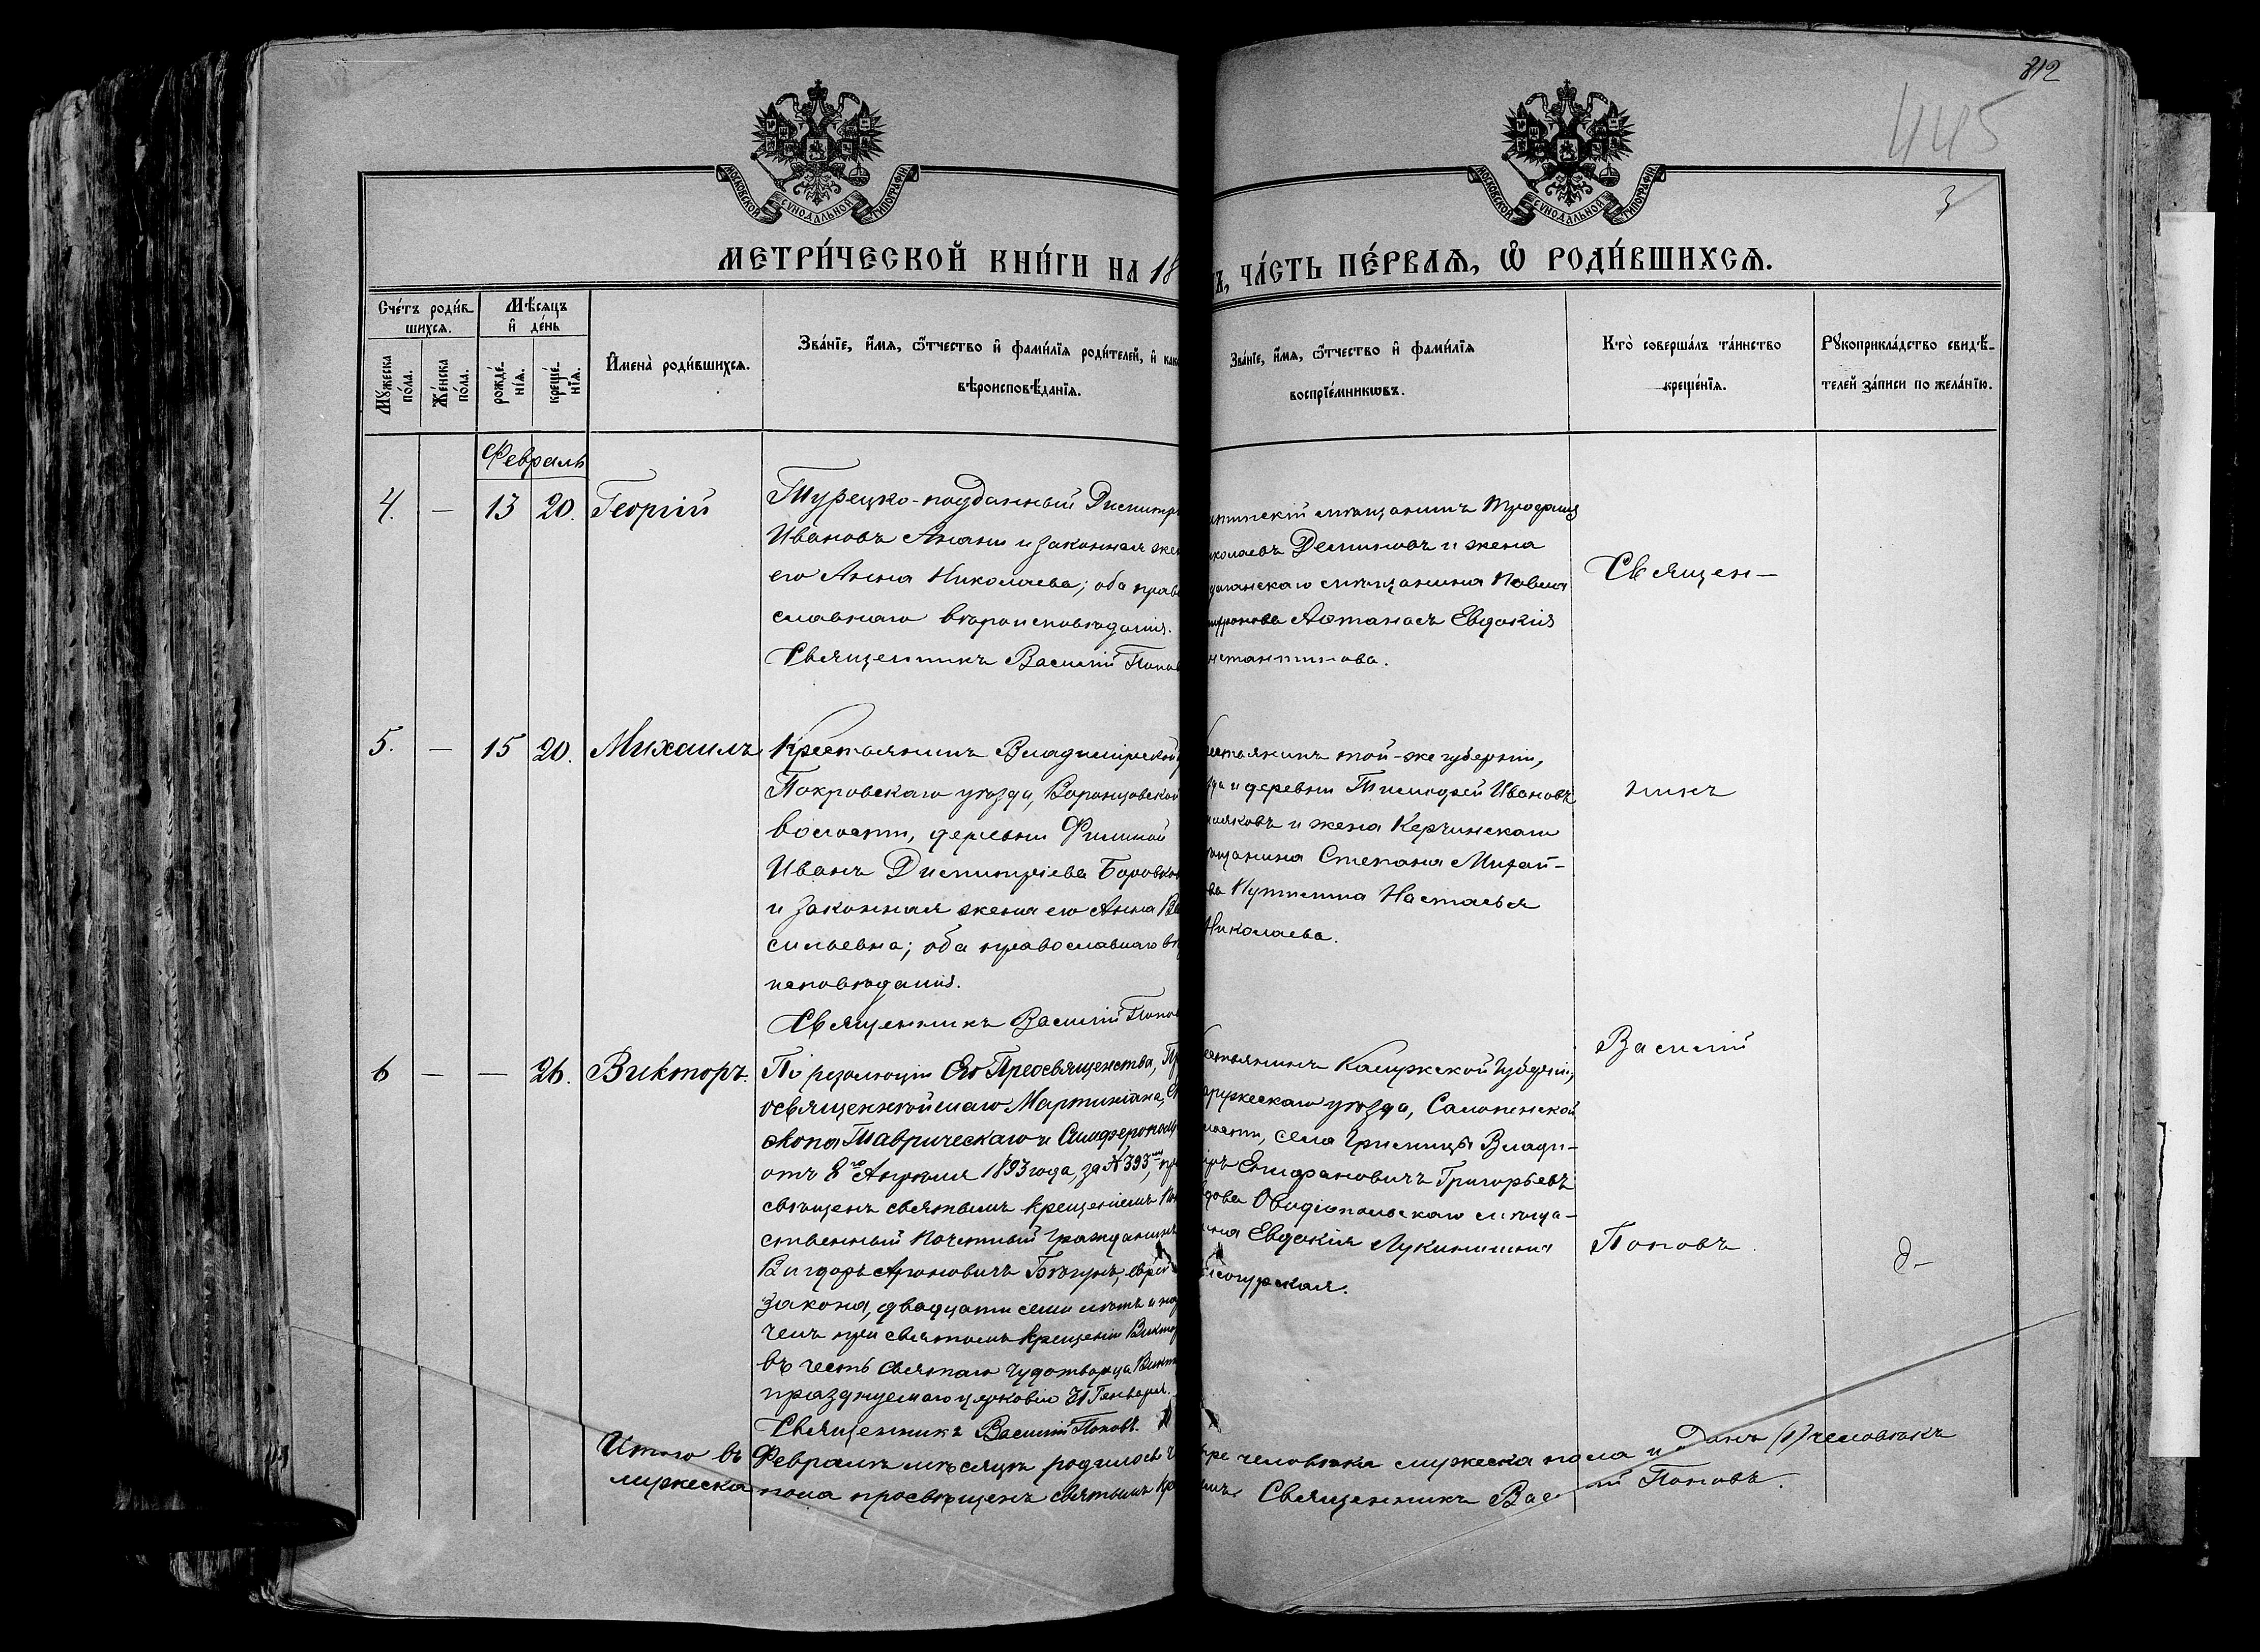 812
445
3
МОСКОВСКОЙ СУНОДАЛЬНОЙ ТИПОГРАФІИ
МОСКОВСКОЙ СУНОДАЛЬНОЙ ТИПОГРАФІИ
МЕТРИ́ЧЕСКОЙ КНИ́ГИ НА 18
Ъ, ЧА́СТЬ ПЕ́РВАѦ, Ѡ҆ РОДИ́ВШИХСѦ.
Сче́тъ роди́в
шихсѧ.
Мѣ́сѧцъ
и҆ де́нь
Мꙋ́жеска по́ла.
Же́нска по́ла.
рожде́нїѧ.
креще́нїѧ.
И҆мена̀ роди́вшихсѧ.
Зва́нїе, и҆́мѧ, ѻ҆́тчество и҆ фами́лїѧ роди́телей, и҆ как
вѣроисповѣ́данїѧ.
Зва́нїе, и҆́мѧ, ѻ҆́тчество и҆ фами́лїѧ
воспрїе́мникѡвъ.
Кто̀ соверша́лъ та́инство
креще́нїѧ.
Рꙋкоприкла́дство свидѣ́-
телей за́писи по жела́нїю.
Февраль
4. — 13 20. Георгій
Турецко-подданный Димитр
Ивановъ Анани и законная жен
его Анна Николаева; оба прав
славнаго вѣроисповѣданія.
Священникъ Василій Попов
мѣщанинъ
колаевъ Демиховъ и жена
мѣщанина Павла
Афанасъ Евдокія
нстантинова.
Священ-
5. — 15 20. Михаилъ
Крестьянинъ Владимірской
Покровскаго уѣзда, Воронцовской
волости, деревни Филиной
Иванъ Димитріевъ Боровков
и законная жена его Анна Ва
сильевна; оба православнаго вѣ
исповѣданія.
Священникъ Василій Попов
естьянинъ той-же губерніи,
зда и деревни Тимофей Ивановъ
ляковъ и жена Керчинскаго
ѣщанина Степана Михай-
ва Путилина Настасья
Николаева.
никъ
6 — — 26. Викторъ.
По резолюціи Его Преосвященства, Пр
освященнѣйшаго Мартиніана, Еп
скопа Таврическаго и Симферополь
отъ 8го Апрѣля 1893 года, за № 393мъ, пр
свѣщенъ святымъ крещеніемъ По
ственный Почетный Гражданинъ
Вигдоръ Ароновичъ Бѣгунъ, еврей
закона, двадцати семи лѣтъ и на
ченъ при святомъ крещеніи Виктор
въ честь святаго чудотворца Викт
празднуемаго церковію 31 Генваря.
Священникъ Василій Поповъ.
естьянинъ Калужской губерніи,
аружескаго уѣзда, Салопенской
лости, села Гримицы Влади-
іръ Епифановичъ Григорьевъ
дова Овидіопольскаго мѣща-
ина Евдокія Лукинишна
согурская.
Василій
Поповъ.
Итого въ Февралѣ мѣсяцѣ родилось че
ыре человѣка мужеска пола и одинъ (1) человѣкъ
мужеска пола просвѣщенъ святымъ кре
емъ. Священникъ Василій Поповъ.